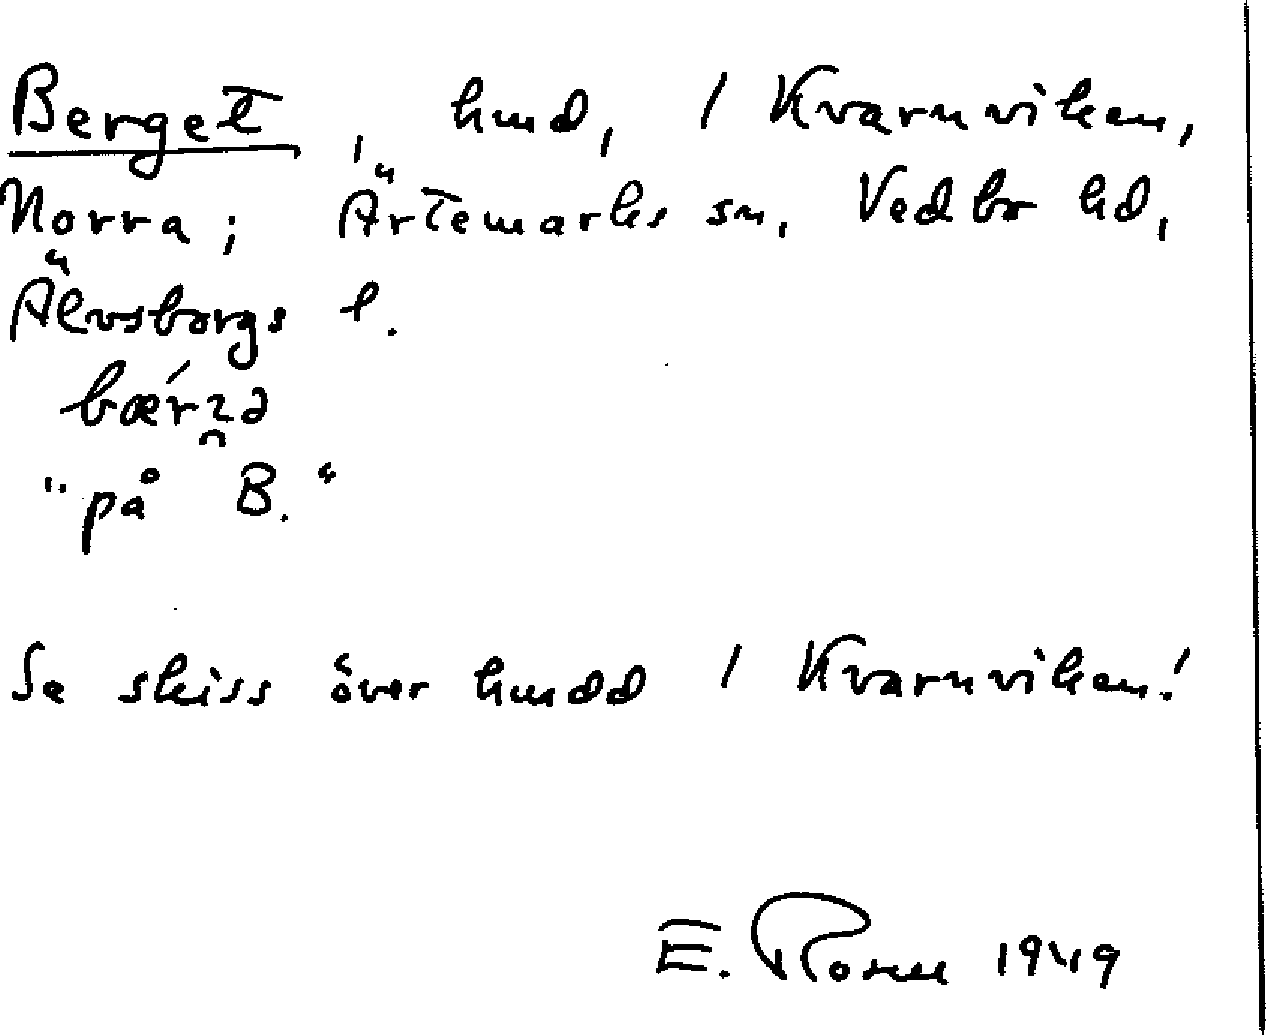 Berget, hmd, 1 Kvarnviken,
Norra; Ärtemarks sn, Vedbo hd,
Älvsborgs l.
"på B."
Se skiss över hmdd 1 Kvarnviken!
E. Rosell 1949